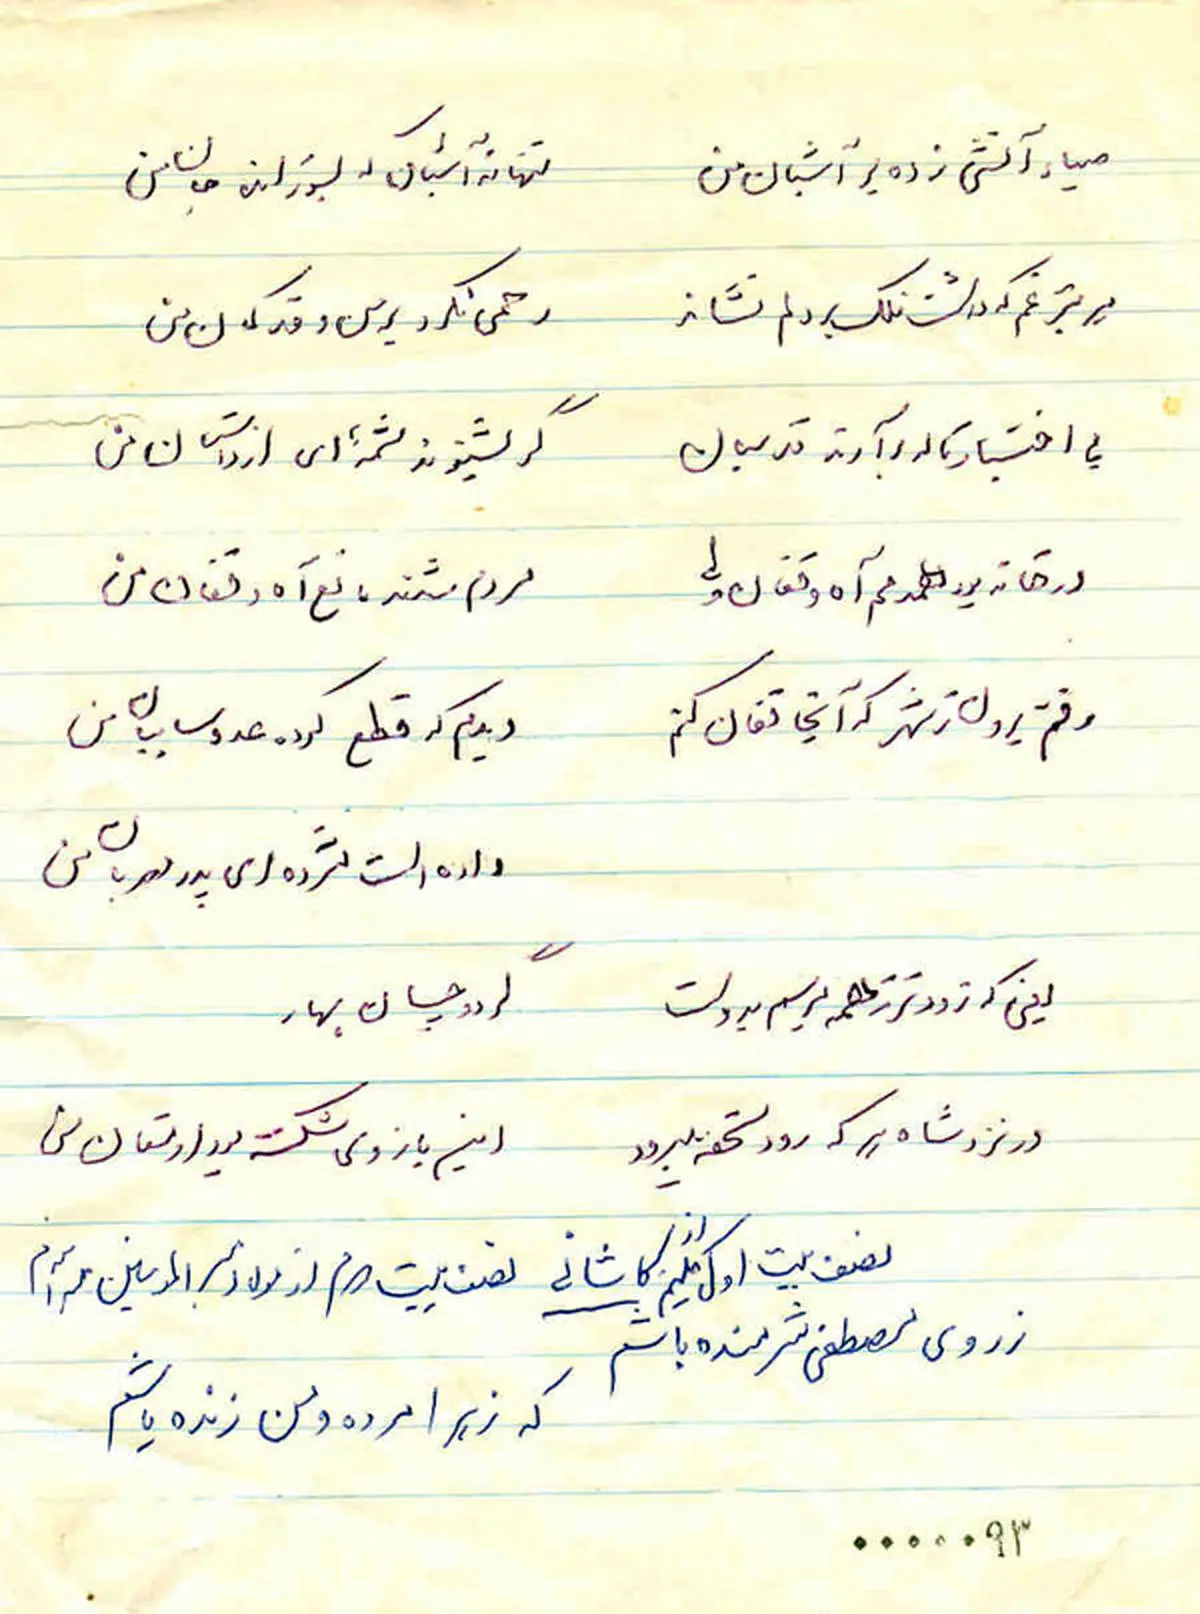 صیاد آتش زده بر آشیان من    تنها نه آشیان که بسوزانده جان من
هر تیر غم که داشت فلک بر دلم نشاند    رحمی نکرد بر من و قد کمان من
بی اختیار ناله برآرند قدسیان    گر بشنوند شمه ای از داستان من
در خانه بود همدمم آه و فغان ولی    مردم شدند مانع آه و فغان من
رفتم برون ز شهر که آنجا فغان کنم    دیدم که قطع کرده عدو سایبان من
داده است مژده ای پدر مهربان من
یعنی که زودتر ز همه برسم بدولت    گردد چسان بهار
در نزد شاه هر که رود تحفه میبرد    اینم بازوی شکسته بود ارمغان من
نصف بیت اول از کلیم کاشانی    نصف بیت دوم از مولا امیرالمومنین
ز روی مصطفی شرمنده باشم
که زهرا مرده و من زنده باشم
۰۰۰۰۰۹۳